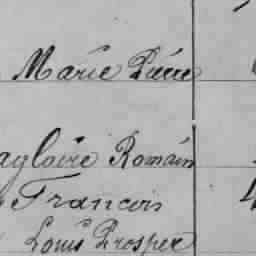 Marie Pierre
Romain
Francois
Louis Prosper